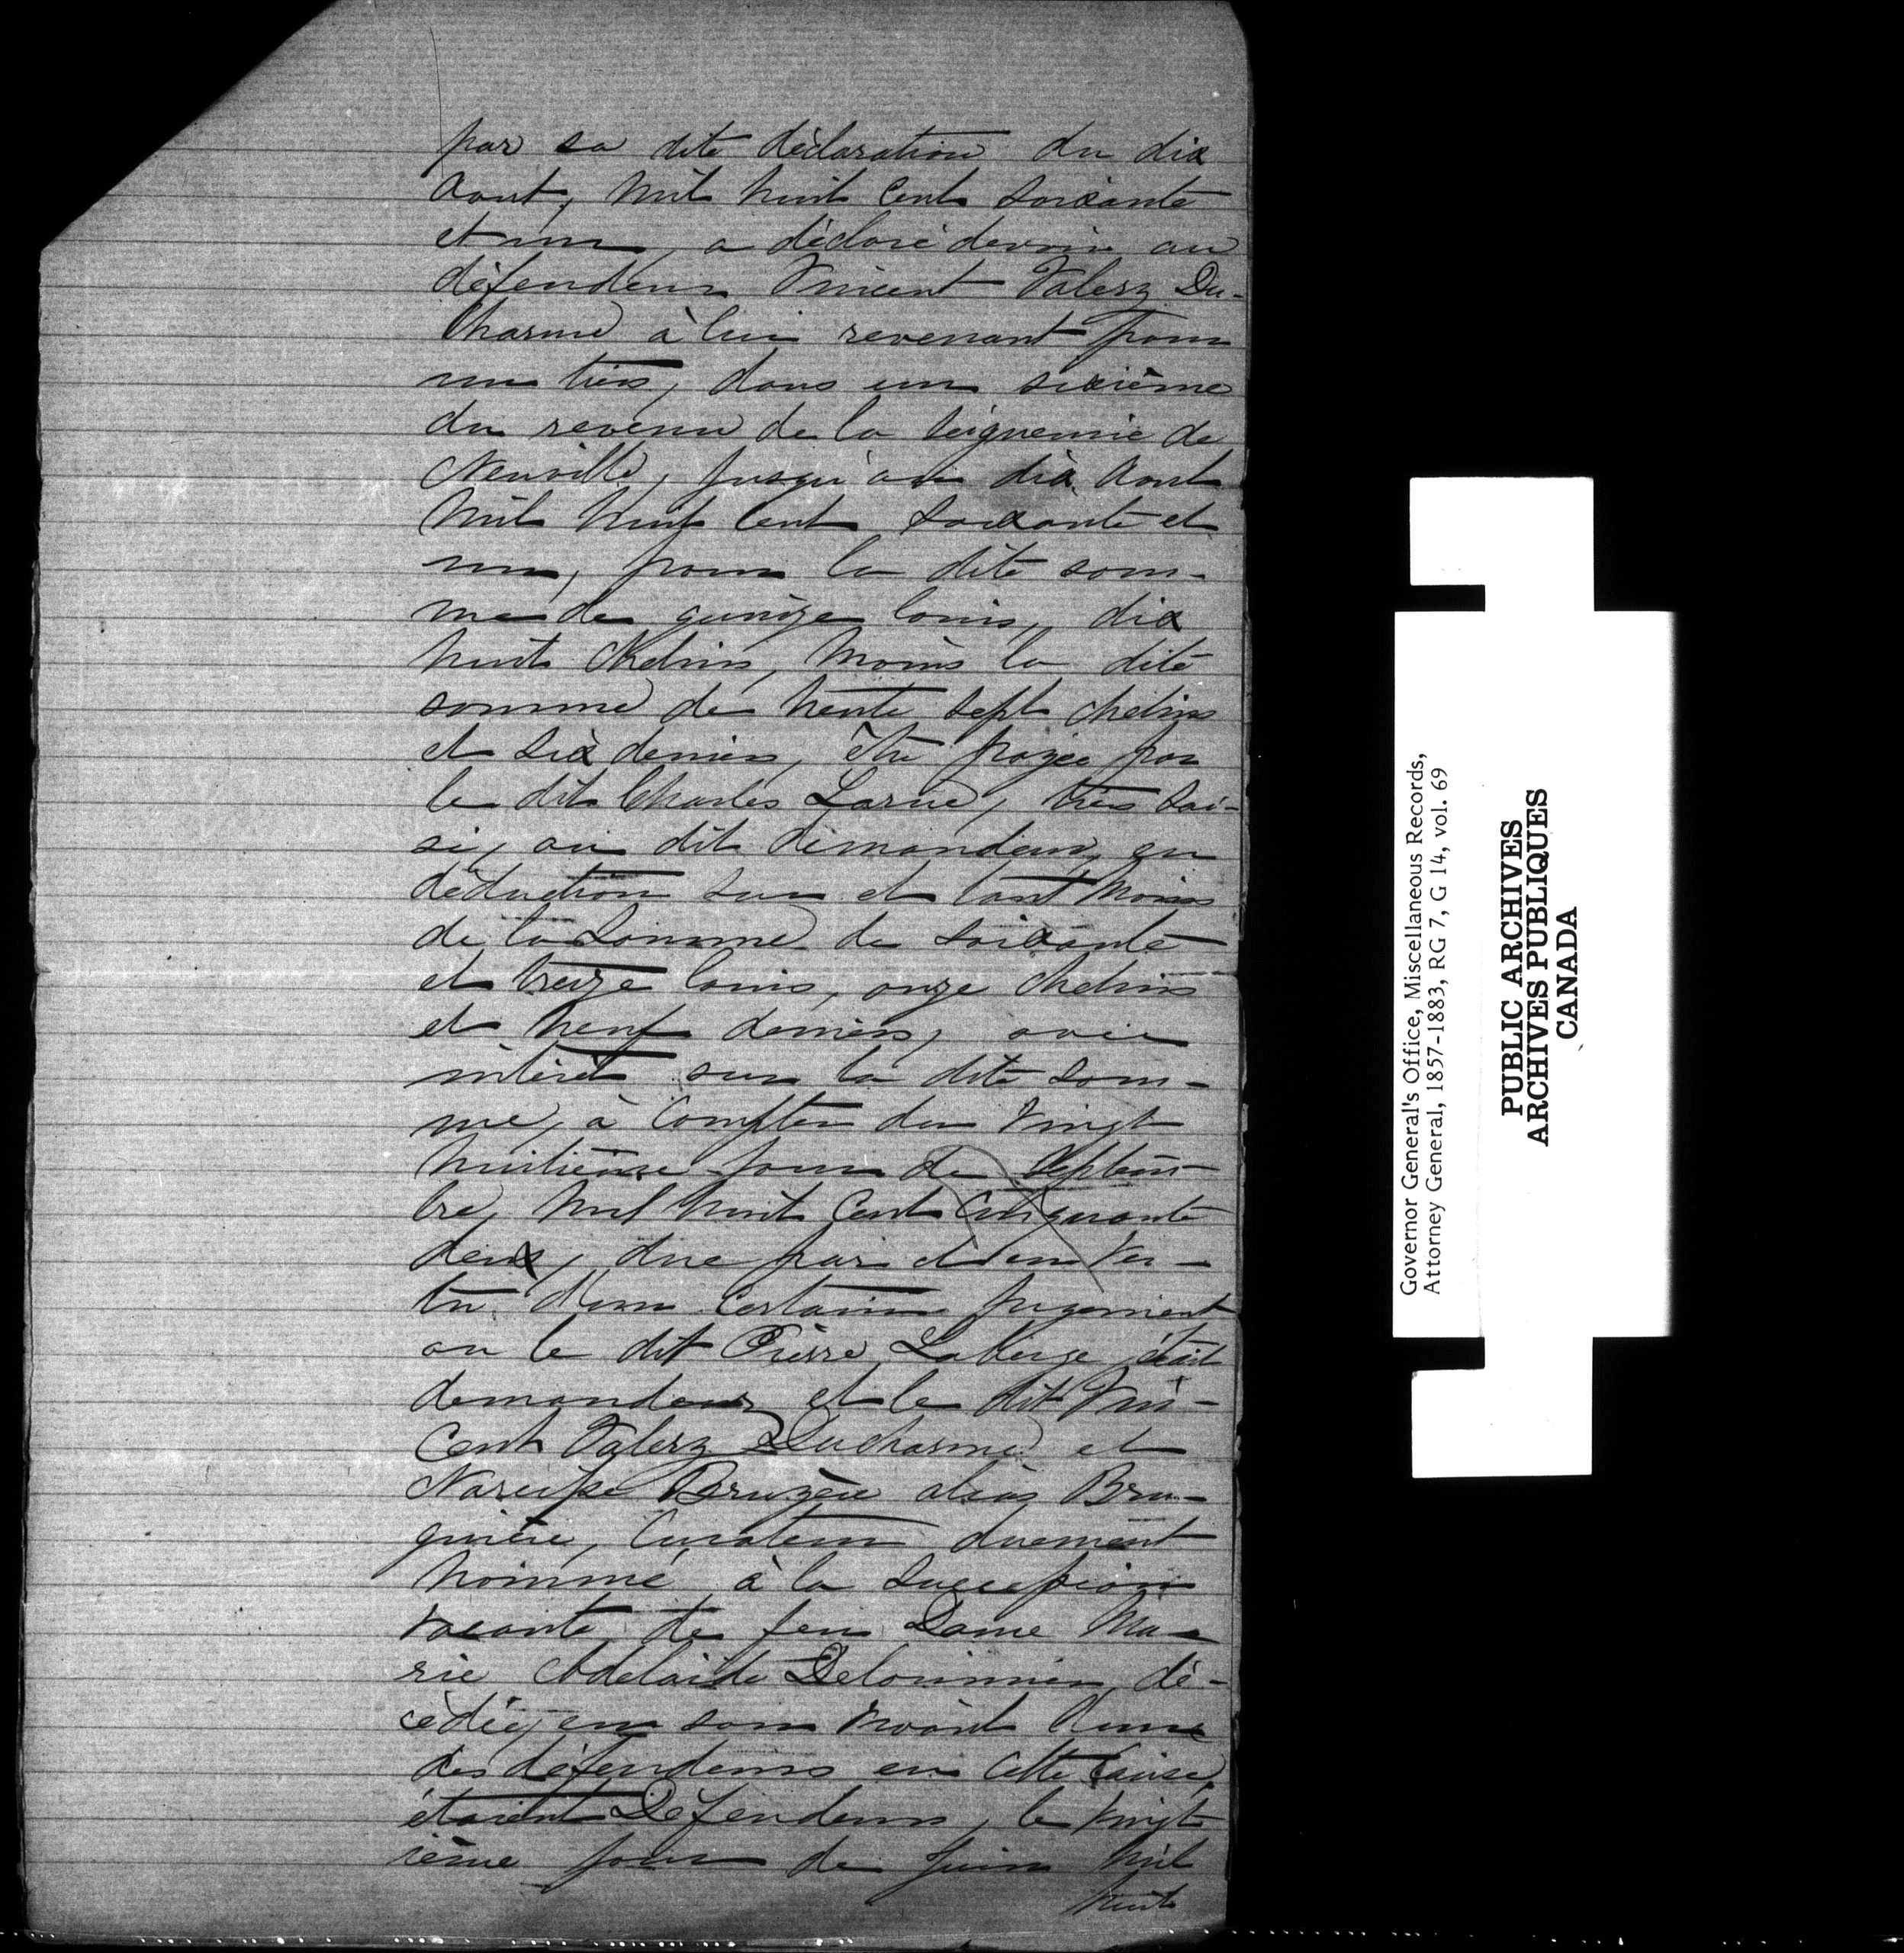 par sa dite déclaration du dix
Aout, mil huit cent soixante
et un, a déclaré devoir au
défendeur Vincent Valery Du-
charme à lui revenant pour
un tiers, dans un sixième
du revenu de la Seigneurie de
Neuville, jusqu'au dix Aout
mil huit cent soixante et
un, pour la dite som-
me de quinze louis, dix
huit chelins, moins la dite
somme de trente sept chelins
et six deniers, être payée par
le dit Charles Larue, tiers sai-
si, au dit demandeur, en
déduction sur et tant moins
de la somme de soixante
et treize louis, onze chelins
et neuf deniers, avec
intérêt sur la dite som-
me, à compter du vingt
huitième jour de Septem-
bre, mil huit cent cinquante
deux, due par et en ver-
tu d'un certain jugement
ou le dit Pierre Laberge était
demandeur et le dit Vin-
cent Valery Ducharme et
Narcisse Bruyère alias Bru-
guière, Curateur duement
nommé à la succession
vacante de feu Dame Ma-
rie Adelaide Delorimier, dé-
cédée, en son vivant l'une
des défendeurs en cette cause,
étaient Défendeurs, le vingt
ième jour de Juin mil
huit
Governor General's Office, Miscellaneous Records,
Attorney General, 1857-1883, RG 7, G 14, vol. 69
PUBLIC ARCHIVES
ARCHIVES PUBLIQUES
CANADA